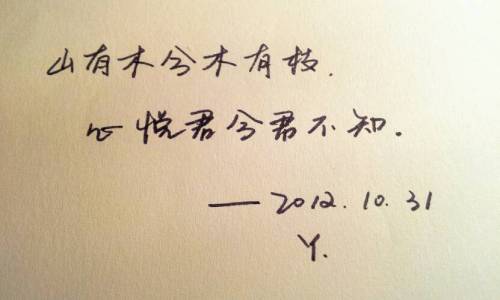 山有木兮木有枝.
心悦君兮君不知.
—2012.10.31
Y.